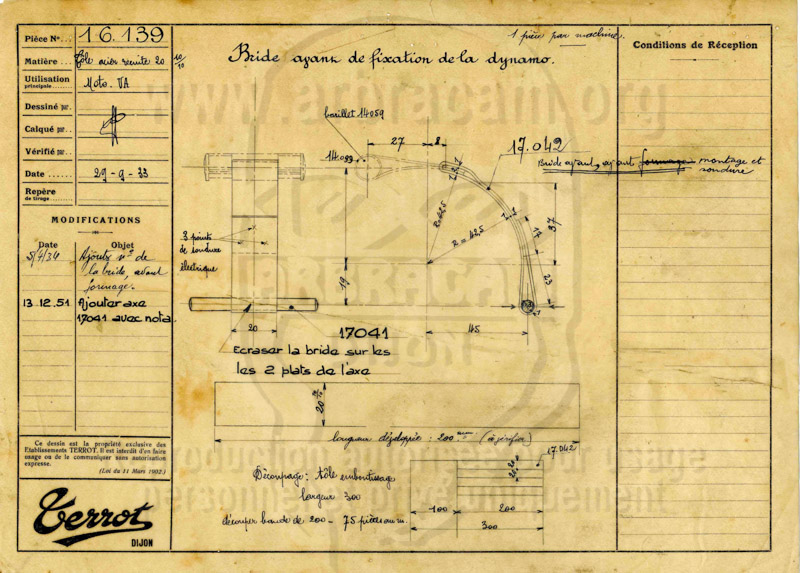 Pièce N° 16.139
Matière Tôle acier recuite 20 10/10
Utilisation
principale Moto. VA
Dessiné par
Calqué par
Vérifié par
Date 29-9-33
Repère
de tirage
MODIFICATIONS
Date Objet
5/4/34 Ajouts n° de
la bride, avant
formage.
13.12.51 Ajouter axe
17041 avec nota
Ce dessin est la propriété exclusive des
Etablissements TERROT. Il est interdit d'en faire
usage ou de le communiquer sans autorisation
expresse.
(Loi du 11 Mars 1902.)
Terrot
DIJON
1 pièce par machine.
Bride ayant de fixation de la dynamo.
Conditions de Réception
barillet 14059
27 8
17.042
Bride avant, avant formage montage et
soudure
R=42,5
R = 42,5
17
37
23
19
45
3 points
de soudure
électrique
20
17041
Ecraser la bride sur les
les 2 plats de l'axe
20
longueur développée : 200 mm (à vérifier)
Découpage: tôle emboutissage
largeur 300
découper bande de 200 - 75 pièces au m.
17.042
20 20
100 200
300
www.arbracam.org
ARBRACAM
DIJON